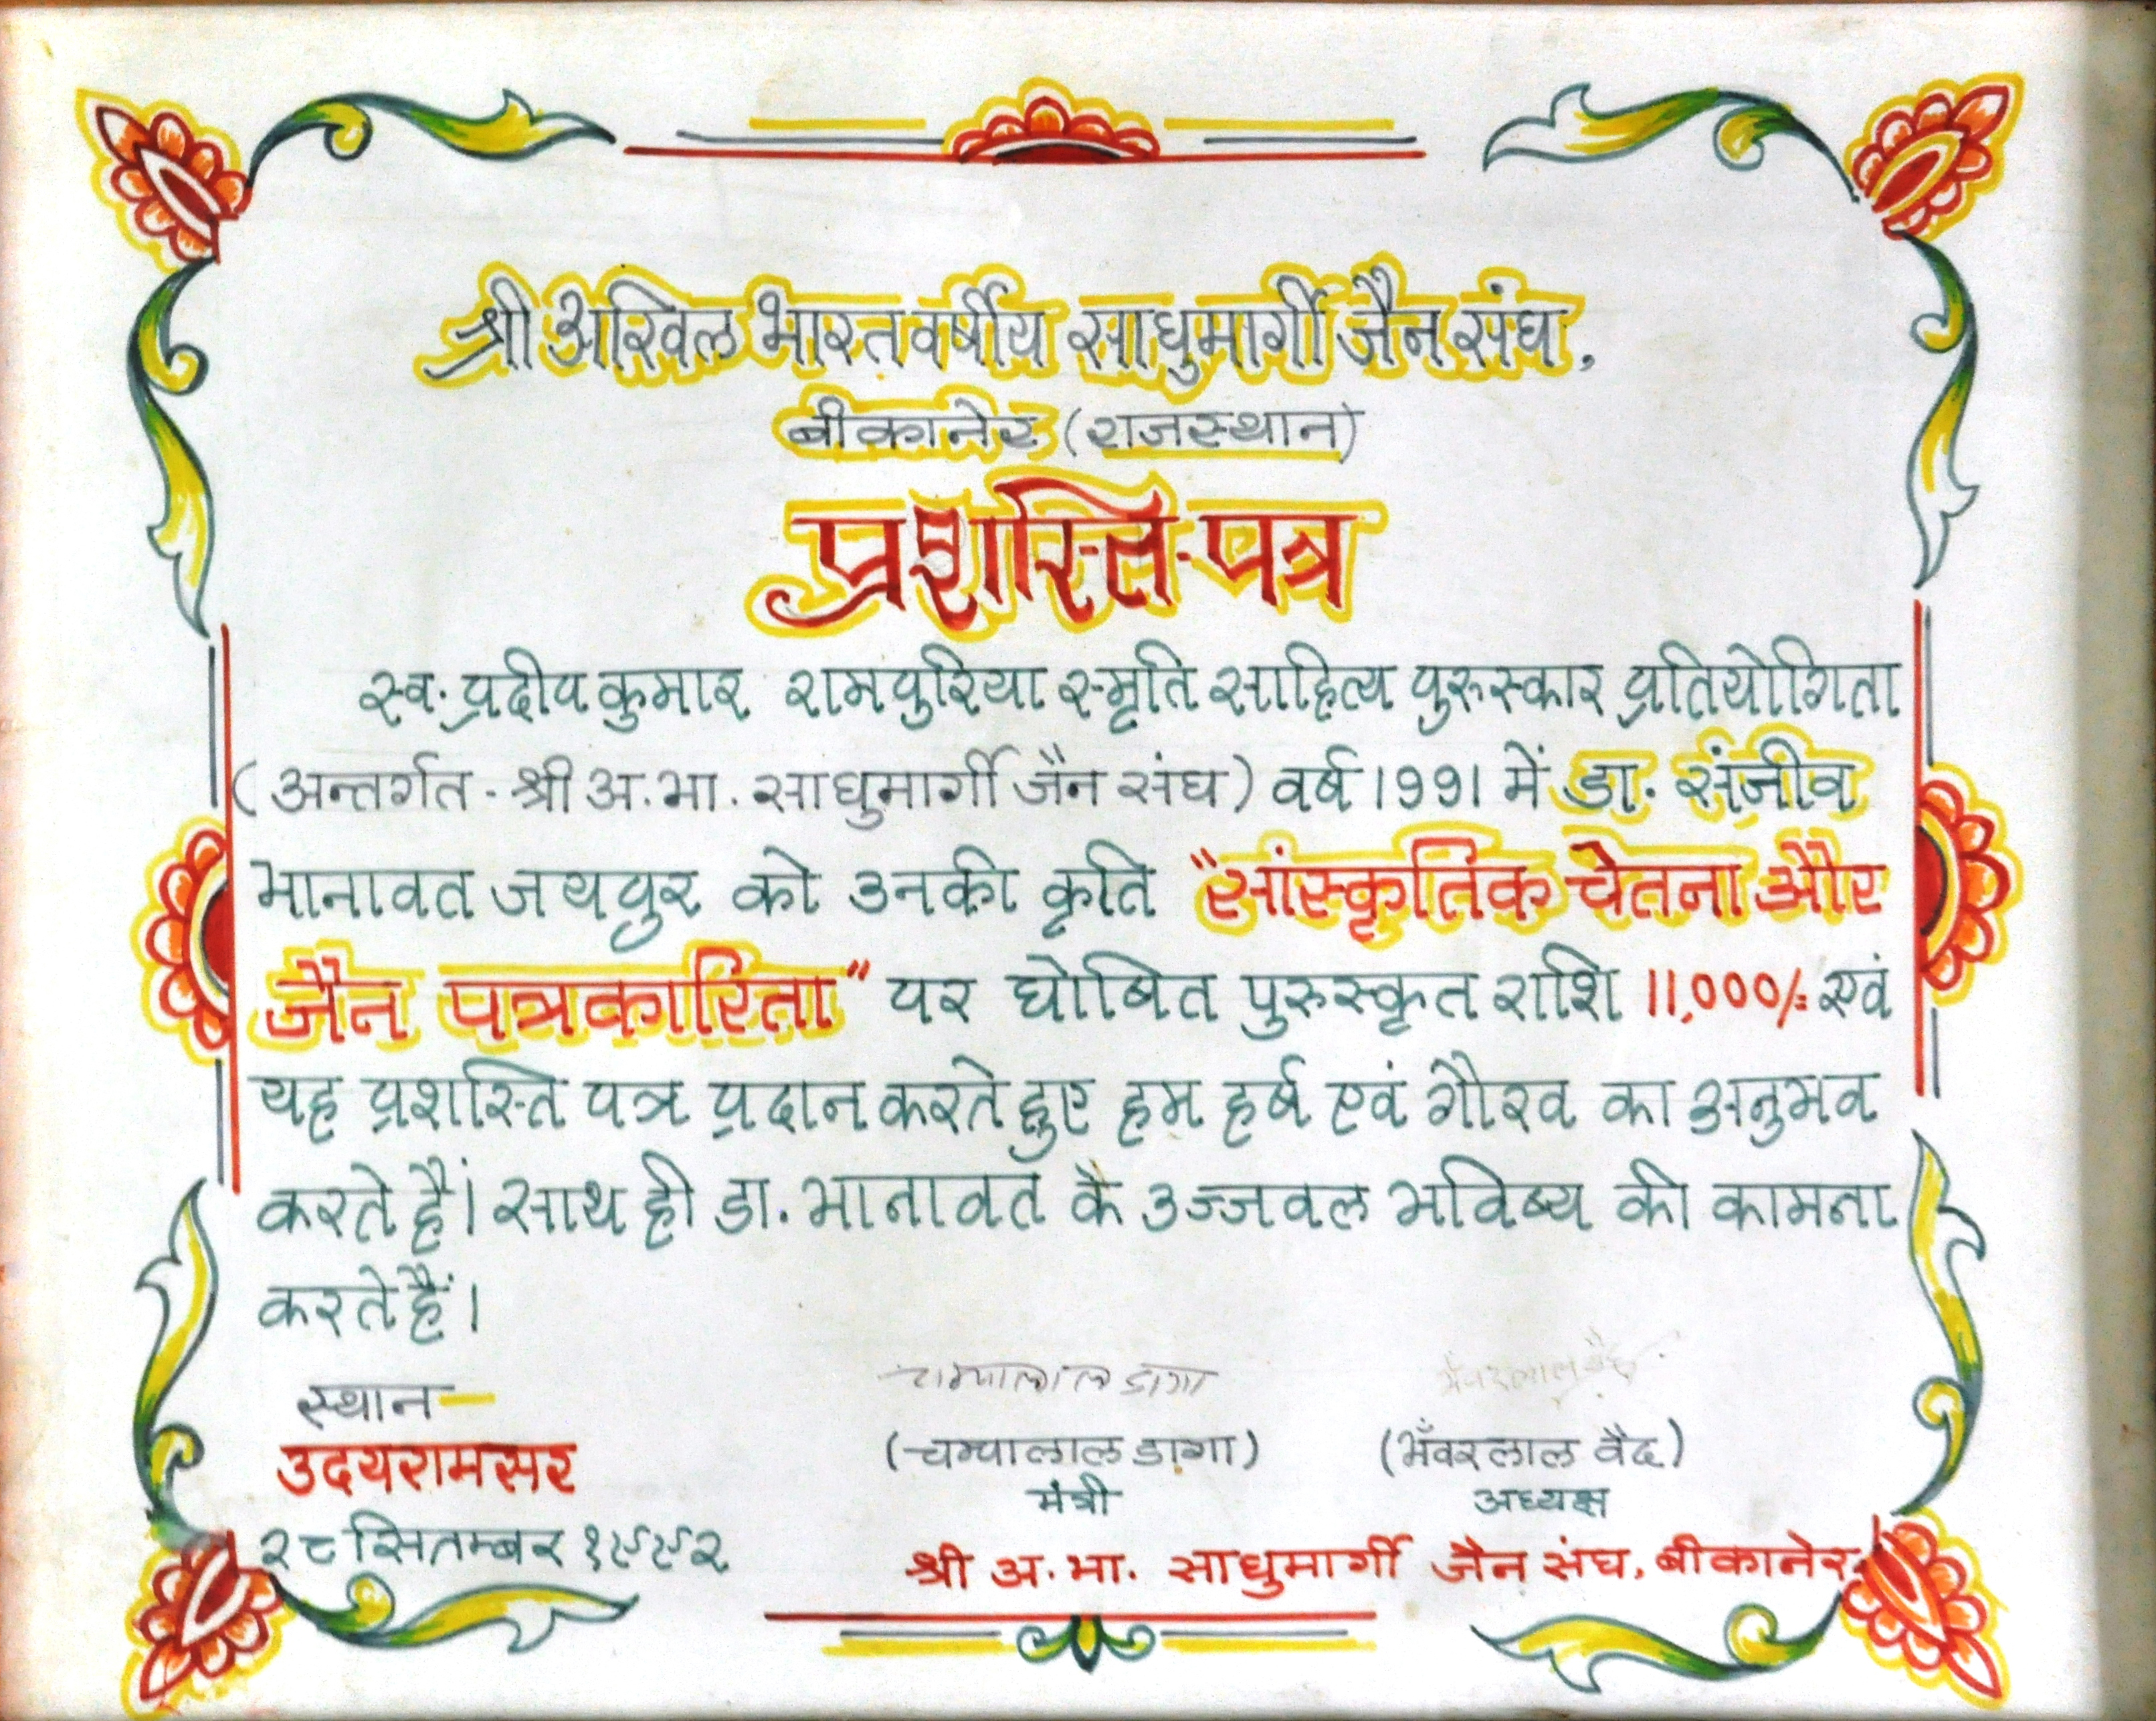 श्री अखिल भारतवर्षीय साधुमार्गी जैन संघ,
बीकानेर (राजस्थान)
प्रशस्ति-पत्र
स्व. प्रदीप कुमार रामपुरिया स्मृति साहित्य पुरुस्कार प्रतियोगिता
(अन्तर्गत - श्री अ.भा. साधुमार्गी जैन संघ) वर्ष 1991 में डा. संजीव
भानावत जयपुर को उनकी कृति "सांस्कृतिक चेतना और
जैन पत्रकारिता" पर घोषित पुरुस्कृत राशि 11,000/= एवं
यह प्रशस्ति पत्र प्रदान करते हुए हम हर्ष एवं गौरव का अनुभव
करते हैं। साथ ही डा. भानावत के उज्जवल भविष्य की कामना
करते हैं।
स्थान—
उदयरामसर
२८ सितम्बर १९९२
चम्पालाल डागा
(चम्पालाल डागा)
मंत्री
भँवरलाल वैद
(भँवरलाल वैद)
अध्यक्ष
श्री अ.भा. साधुमार्गी जैन संघ, बीकानेर